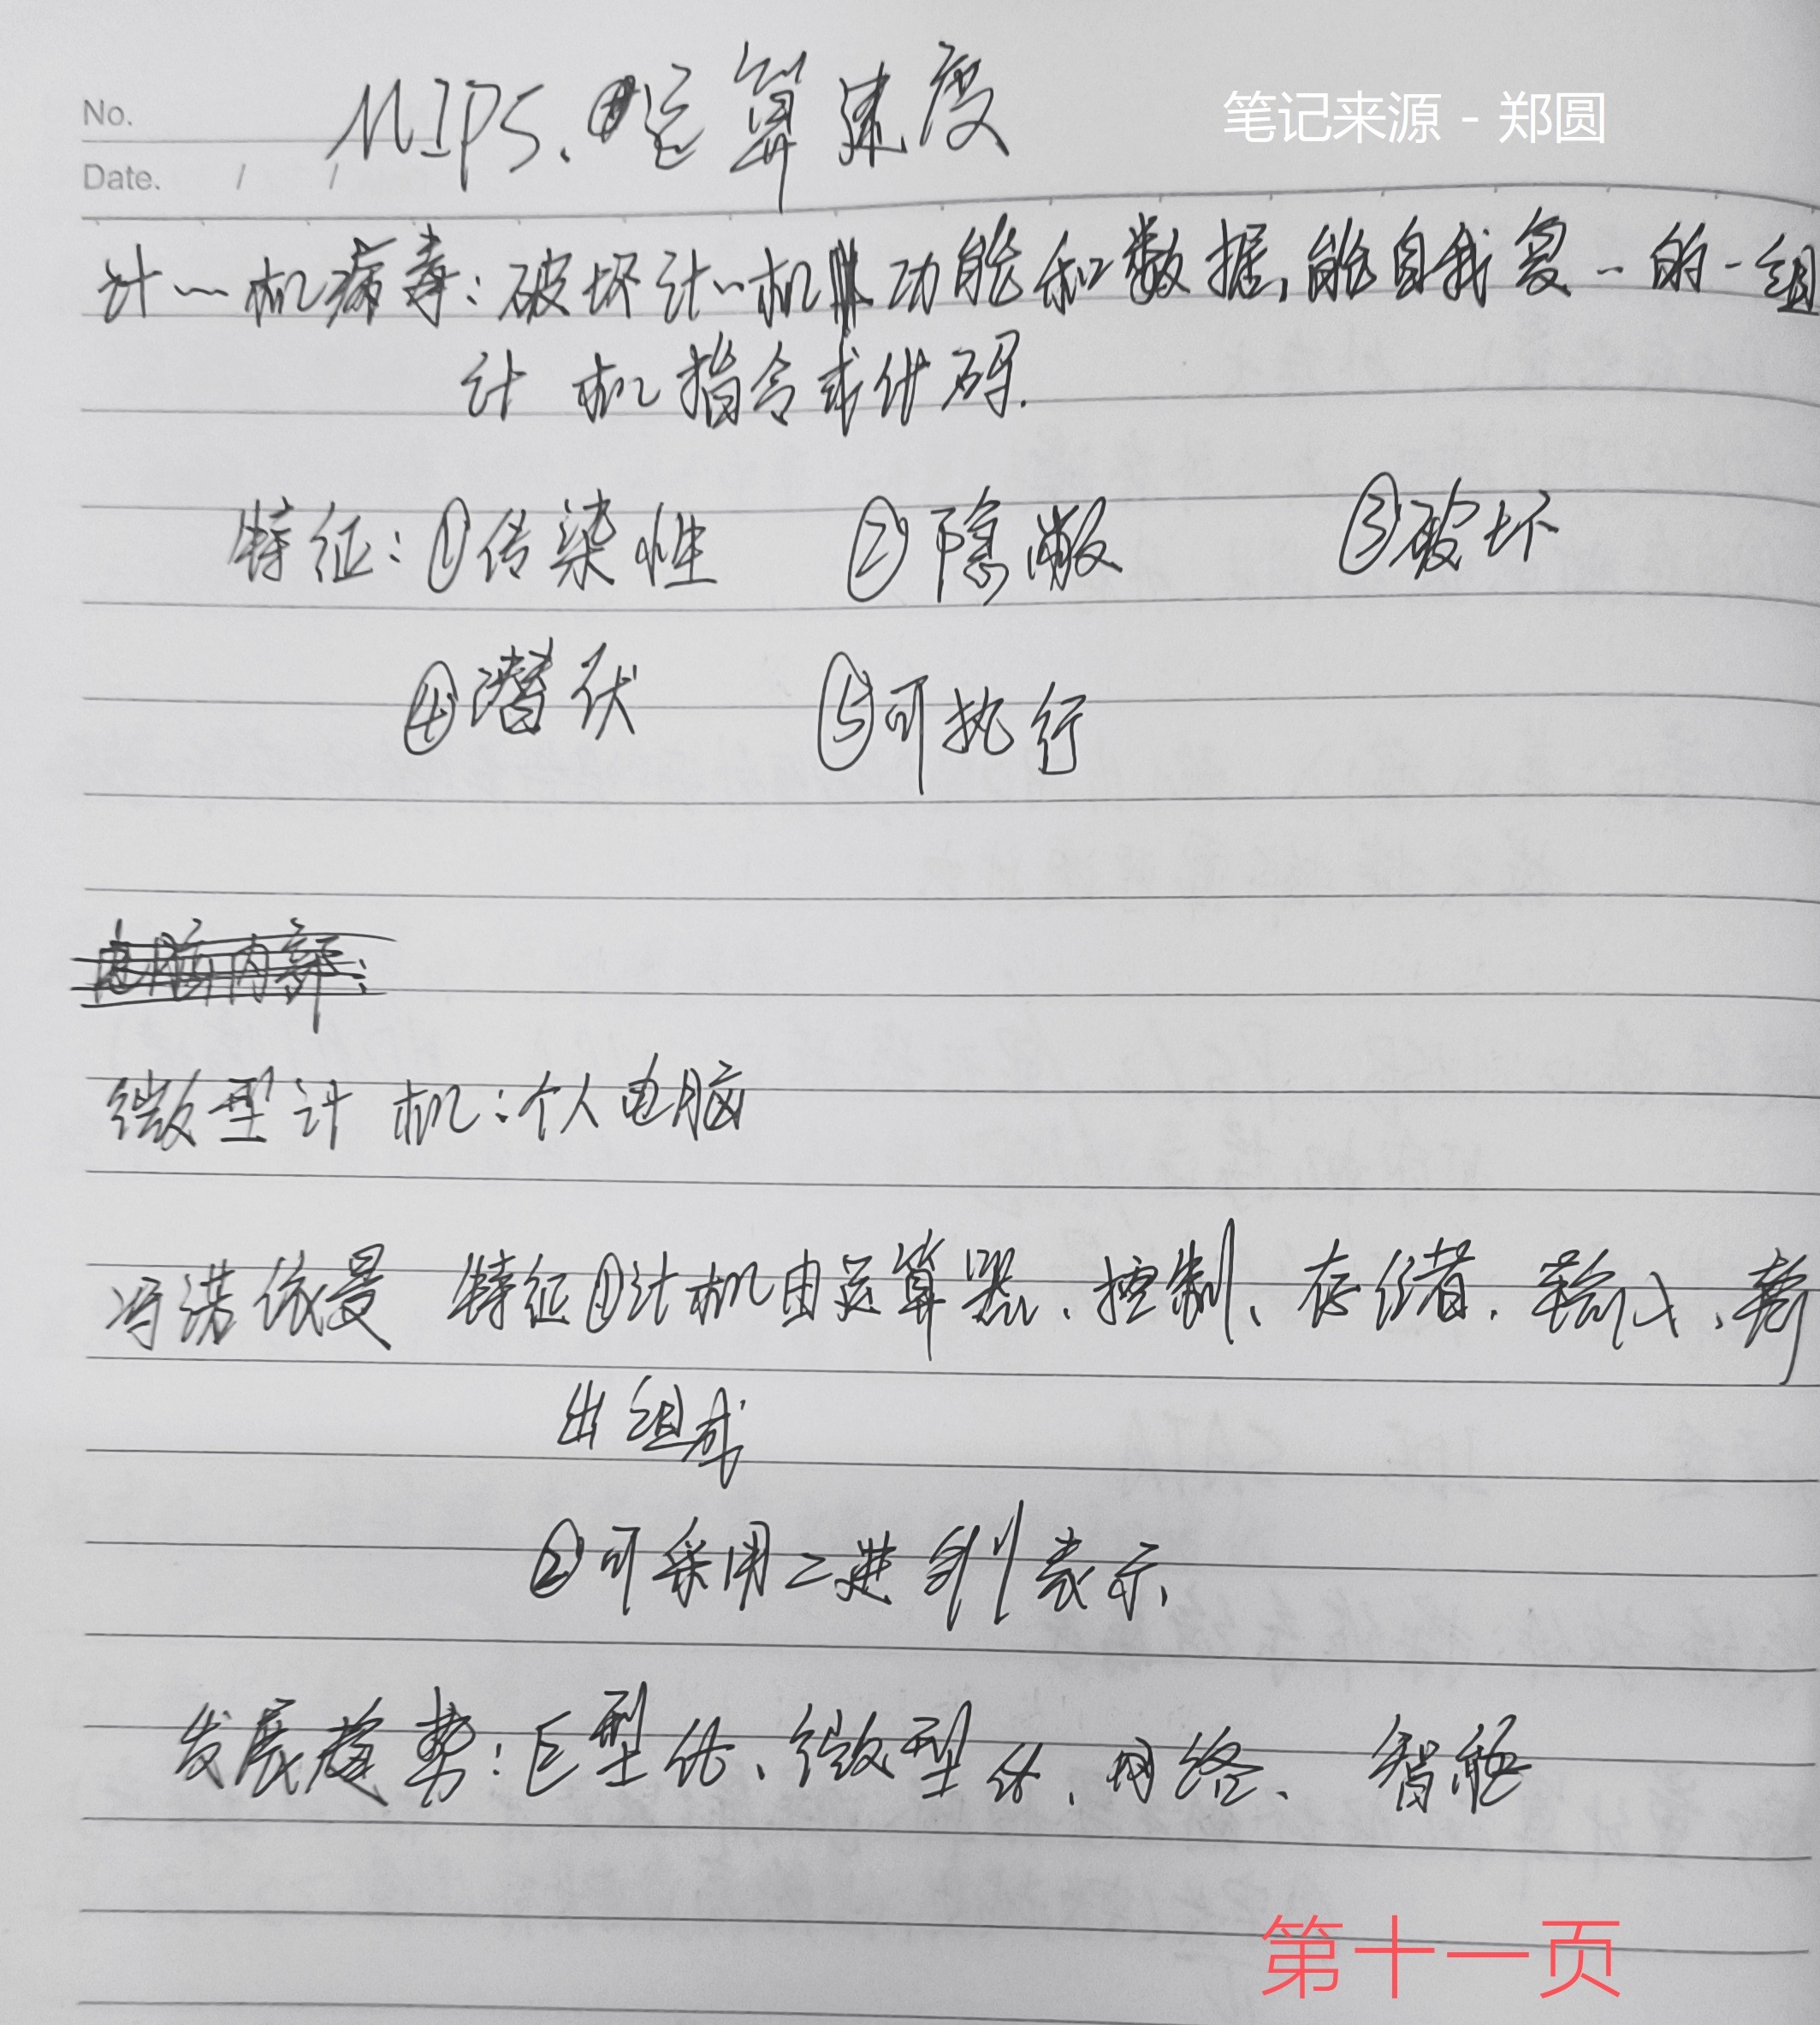 笔记来源 - 郑圆
No.
MIPS、运算速度
Date. / /
计~机病毒：破坏计~机功能和数据，能自我复~的一组
计 机指令或代码.
特征：①传染性 ②隐蔽 ③破坏
④潜伏 ⑤可执行
电脑内部：
微型计 机：个人电脑
冯诺依曼 特征①计 机由运算器、控制、存储、输入、输
出组成
②可采用二进制表示、
发展趋势：巨型化、微型化、网络、 智能
第十一页